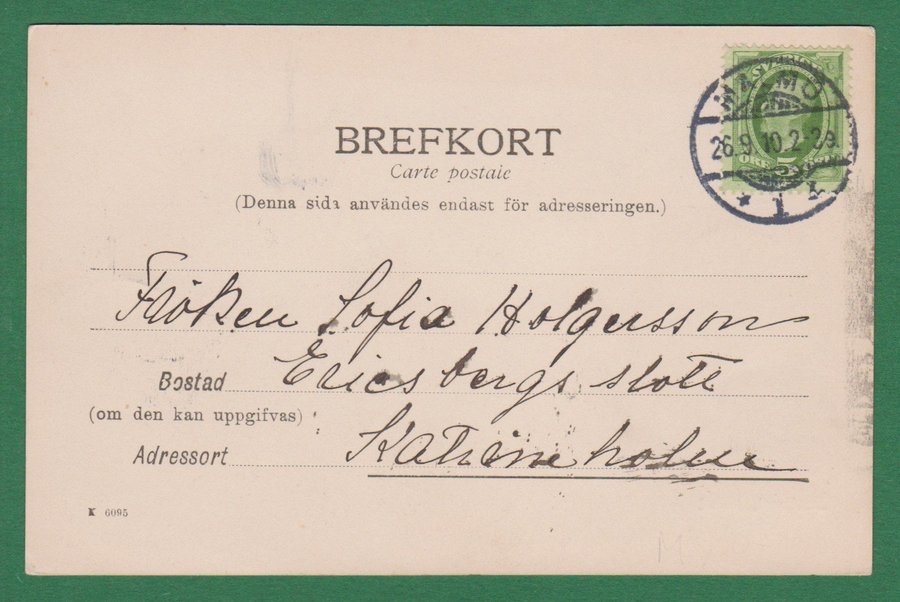 BREFKORT
Carte postale
(Denna sida användes endast för adresseringen.)
SVERIGE
MALMÖ
26.9.10.2-3a.
ÖRE 5
* 1 *
Fröken Sofia Holgersson
Bostad Ericsbergs slott
(om den kan uppgifvas)
Adressort Katrineholm
K 6095